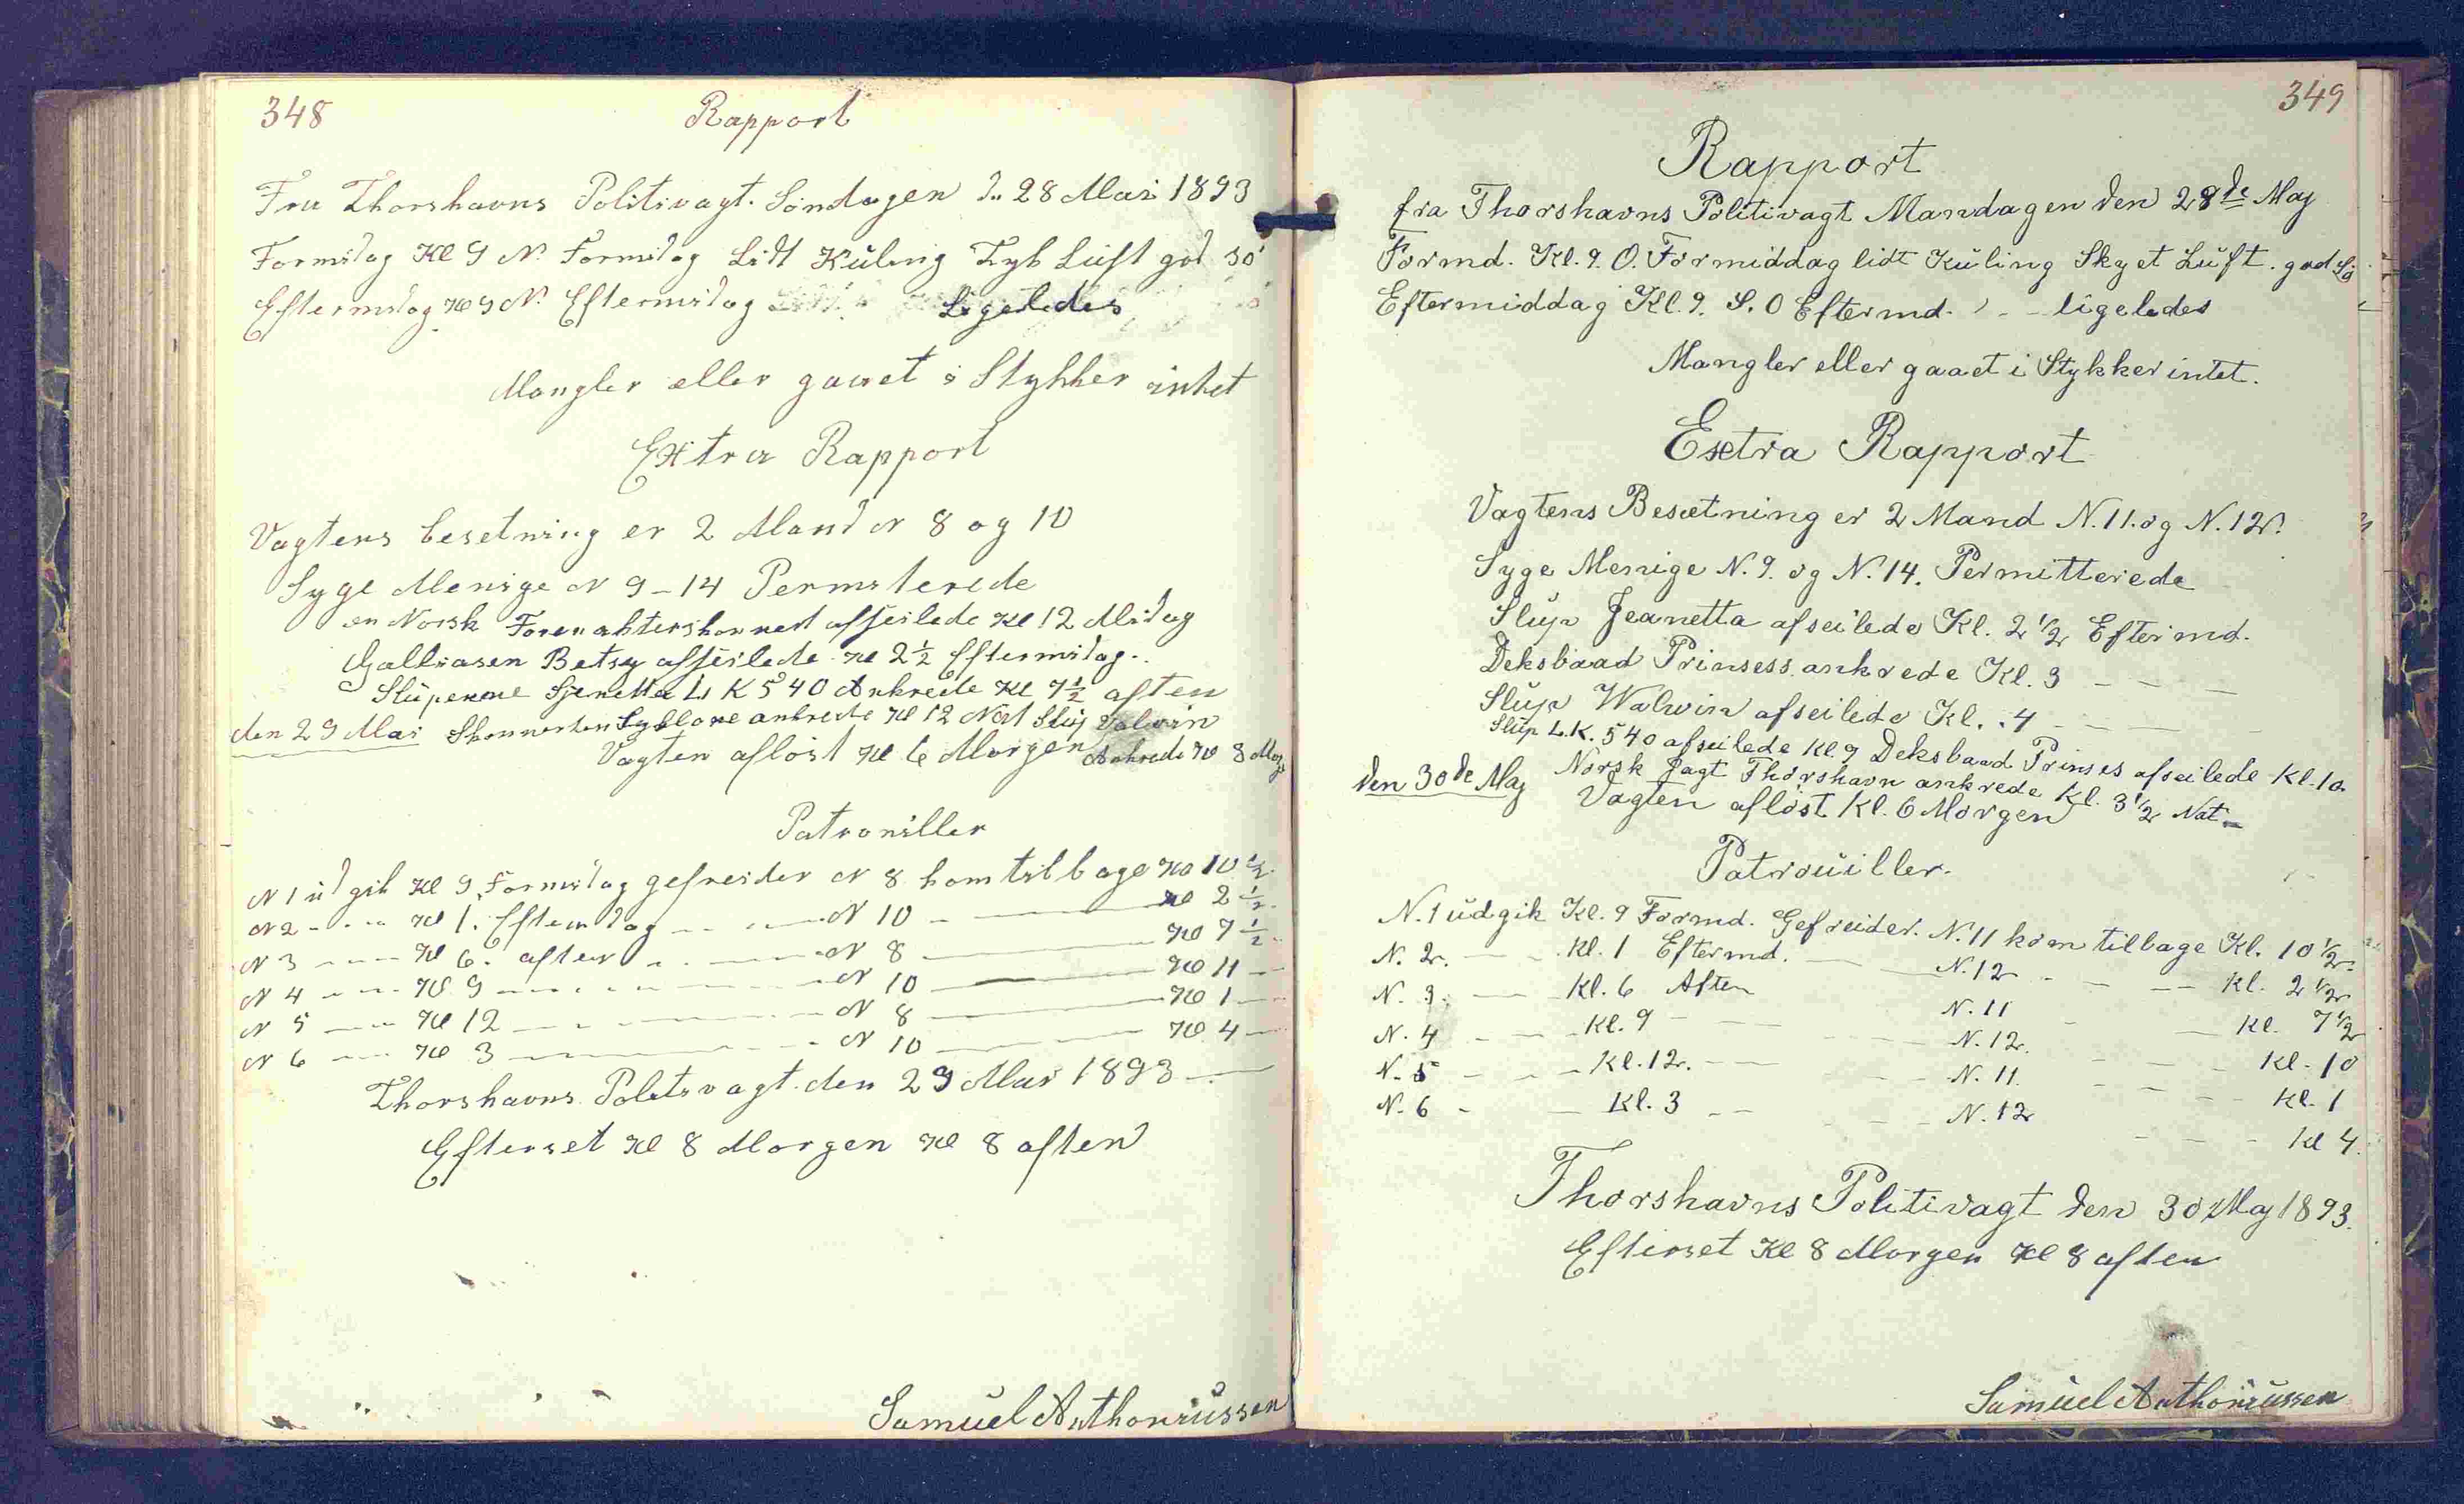 348
Rapport
Fra Thorshavns Politivagt. Söndagen d. 28 Mai 1893
Formidag Kl 9 N. Formidag Lidt Küling Tyk Lüft god sö
Eftermidag Kl 9 N. Eftermidag Ligeledes
Mangler eller gaaet i Stykker intet
Extra Rapport
Vagtens besetning er 2 Mand N 8 og 10
Syge Menige N 9-14 Permiterede
en Norsk Forenaktershonnert afseilede Kl 12 Midag
Galliasen Betsy afseilede Kl 2 1/2 Eftermidag.
Slüperne Sjenetta L K 540 Ankrede Kl 7 1/2 aften
den 29 Mai Skonnerten ankrede Kl 12 Nat Slüp Valvin
Vagten aflöst Kl 6 Morgen Ankrede Kl 8 Morg
Patroniller
N 1 üdgik Kl 9 Formidag gefreider N 8 kom tilbage Kl 10 1/2
N 2 - - - Kl 1. Eftermidag - - - N 10 - - - Kl 2 1/2
N 3 - - - Kl 6. aften - - - N 8 - - - Kl 7 1/2
N 4 - - - Kl 9 - - - N 10 - - - Kl 11 -
N 5 - - - Kl 12 - - - N 8 - - - Kl 1 -
N 6 - - - Kl 3 - - - N 10 - - - Kl 4 -
Thorshavns Politivagt den 29 Mai 1893
Efterset Kl 8 Morgen Kl 8 aften
Samüel Anthoniüssen
349
Rapport
fra Thorshavns Politivagt Mandagen den 28de Maj
Formd. Kl. 9. O. Formiddag lidt Küling Skyet Lüft. god Sö
Eftermiddag Kl. 9. S. O Eftermd. - - ligeledes
Mangler eller gaaet i Stykker intet.
Esctra Rapport
Vagtens Besætning er 2 Mand N. 11. og N. 12.
Syge Menige N. 9. og N. 14. Permitterede
Slüp Jeanetta afseilede Kl. 2 1/2 Eftermd.
Deksbaad Prinsess ankrede Kl. 3 - - -
Slüp Walwin afseilede Kl. 4 - - -
Slüp L.K. 540 afseilede Kl. 9 Deksbaad Prinses afseilede Kl. 10.
den 30de Maj Norsk Jagt Thorshavn ankrede Kl. 3 1/2 Nat.
Vagten aflöst Kl. 6 Morgen
Patroüiller.
N. 1 üdgik Kl. 9 Formd. Gefreider. N. 11 kom tilbage Kl. 10 1/2
N. 2. - - Kl. 1 Eftermd. - - N. 12 - - - Kl. 2 1/2
N. 3. - - Kl. 6 Aften N. 11 - - Kl. 7 1/2
N. 4 - - Kl. 9 - - - N. 12. - - - Kl. 10
N. 5 - - - Kl. 12. - - - N. 11. - - - Kl. 1
N. 6 - - Kl. 3 - - - N. 12 - - - Kl 4.
Thorshavns Politivagt den 30 Maj 1893.
Efterset Kl 8 Morgen Kl 8 aften
Samüel Anthoniüssen